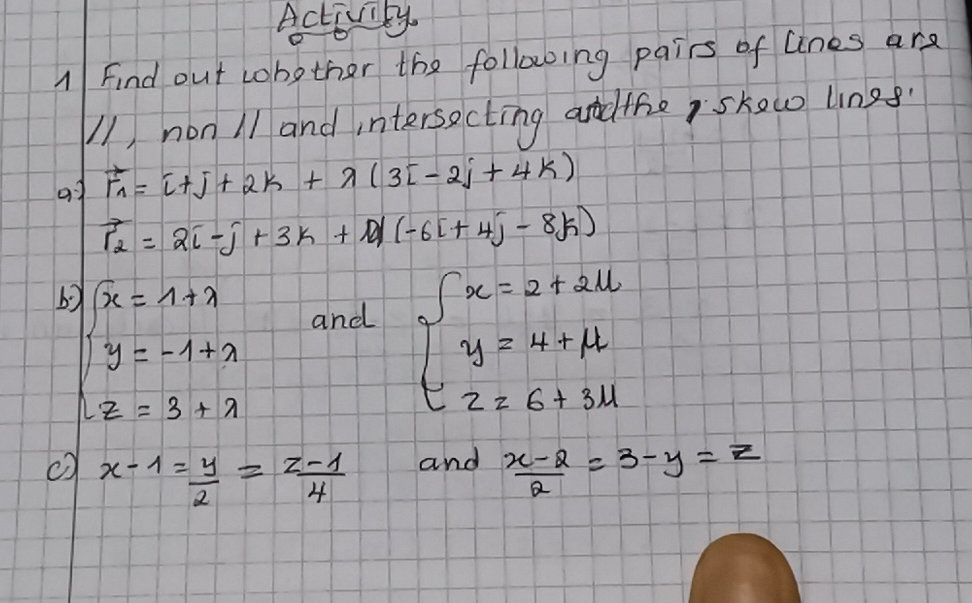 Activity
1 Find out whether the following pairs of lines are
//, non // and intersecting and the skew lines.
a) r₁ = i+j+2k + λ(3i-2j+4k)
r₂ = 2i-j+3k + (-6i+4j-8k)
b) x = 1+λ and x = 2+2μ
y = -1+λ y = 4+μ
z = 3+λ z = 6+3μ
c) x-1 = y/2 = z-1/4 and x-2/2 = 3-y = z